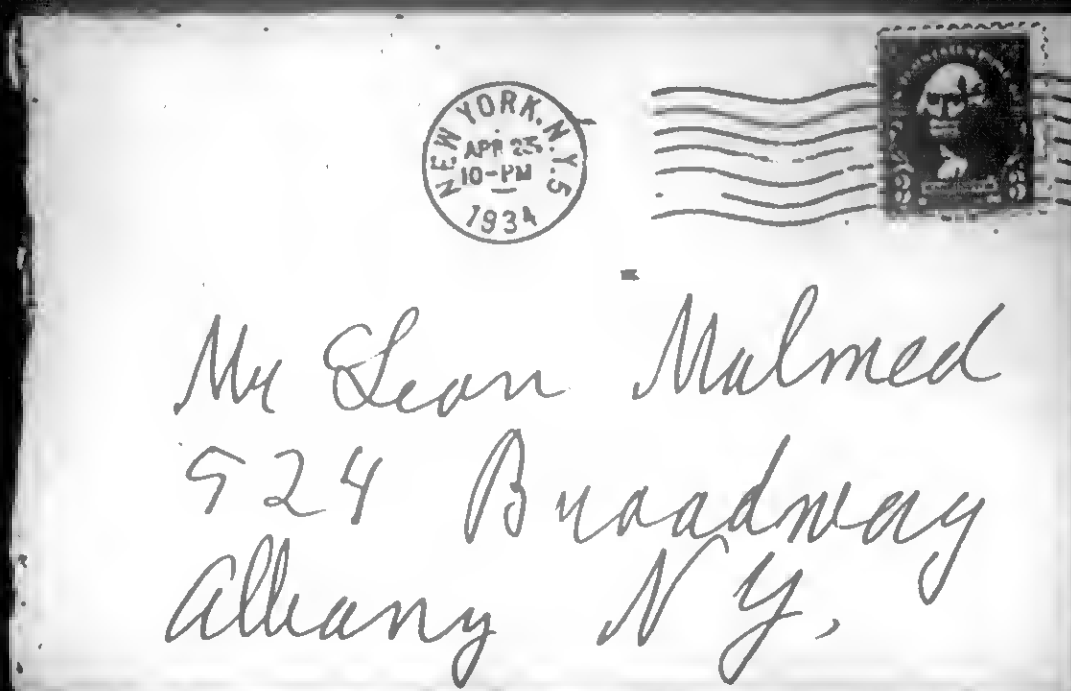 NEW YORK, N.Y. 5
APR 25
10-PM
1934
Mr Leon Malmed
524 Broadway
Albany N Y,